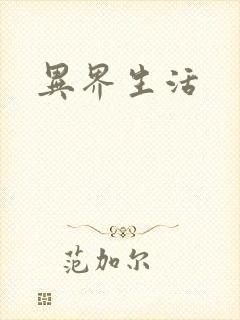 異界生活
范加尔